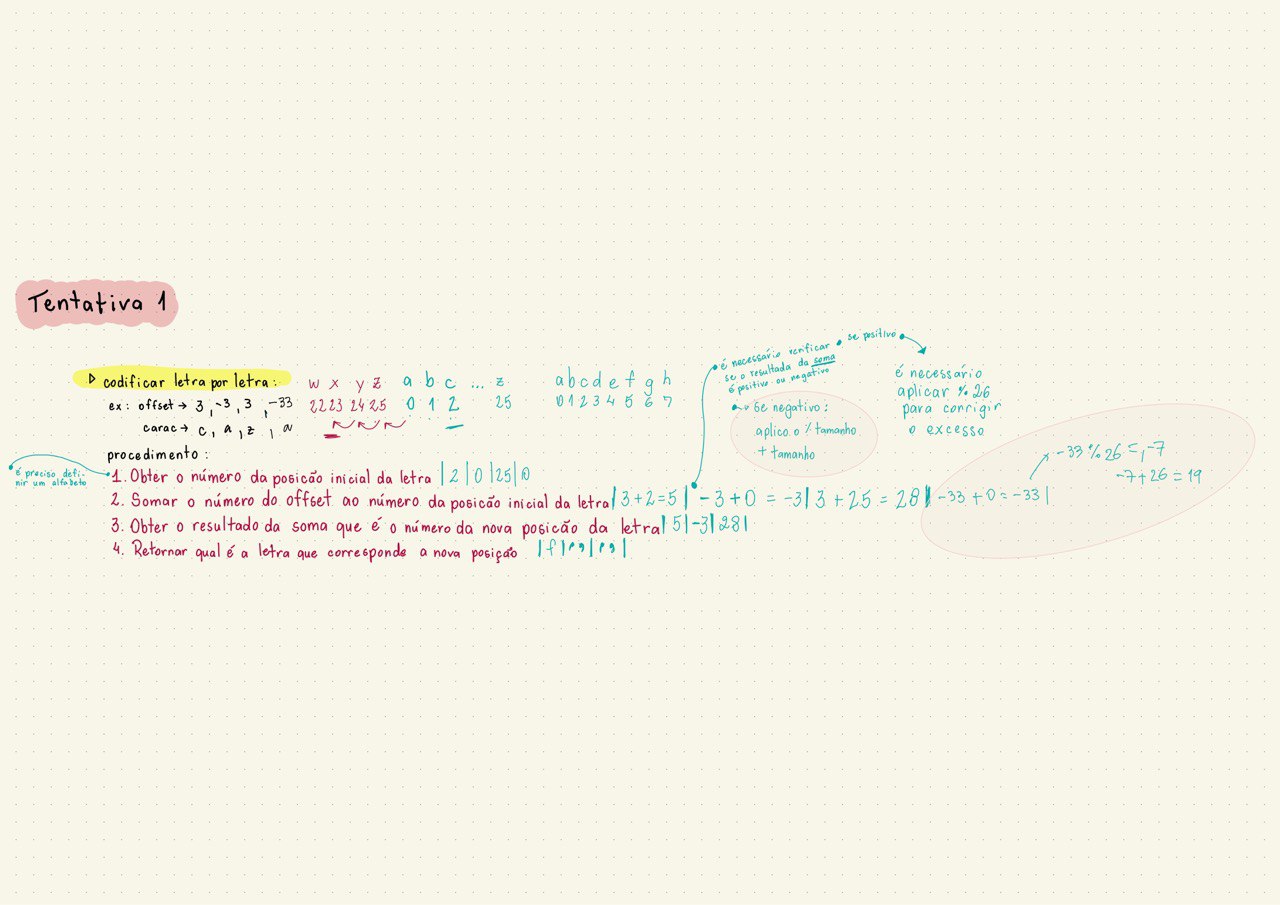 Tentativa 1
▷ codificar letra por letra:
ex: offset → 3, -3, 3, -33
carac → c, a, z, a
w x y z a b c ... z
22 23 24 25 0 1 2 25
a b c d e f g h
0 1 2 3 4 5 6 7
procedimento:
é preciso defi-
nir um alfabeto
1. Obter o número da posição inicial da letra | 2 | 0 | 25 | 0
2. Somar o número do offset ao número da posição inicial da letra | 3+2=5 | -3+0 = -3 | 3+25 = 28 | -33+0=-33 |
3. Obter o resultado da soma que é o número da nova posição da letra | 5 | -3 | 28 |
4. Retornar qual é a letra que corresponde a nova posição | f | ?? | ?? |
é necessário verificar
se o resultado da soma
é positivo ou negativo
se positivo
é necessário
aplicar % 26
para corrigir
o excesso
se negativo:
aplico o % tamanho
+ tamanho
-33 % 26 = -7
-7+26 = 19